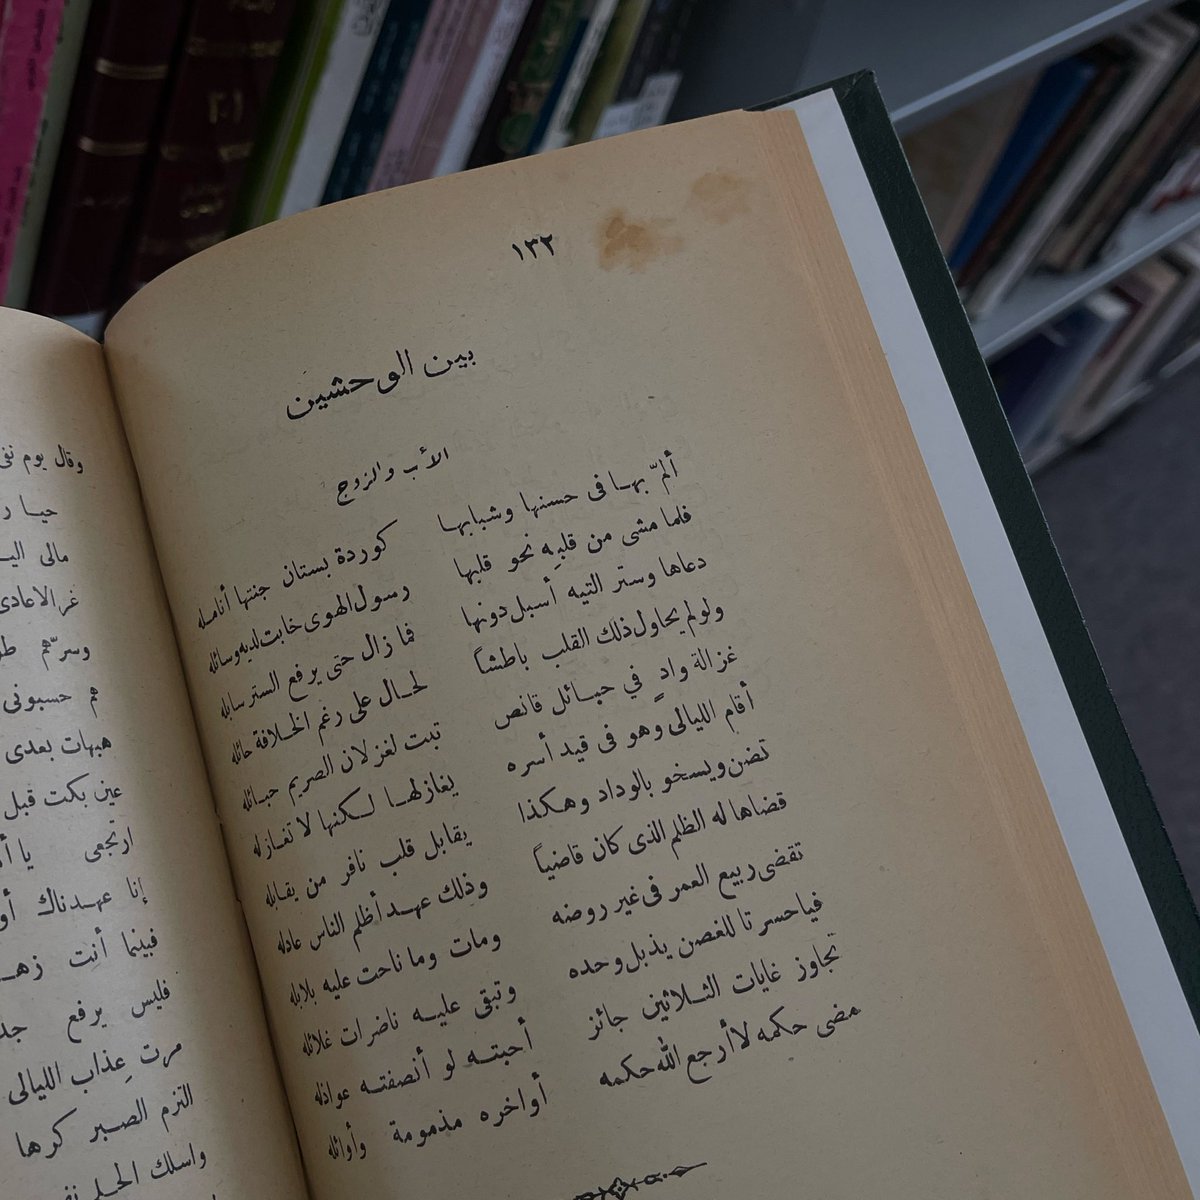 ١٣٢
بين الوحشين
الأب والزوج
ألمّ بهـا فى حسنها وشبابهـا كوردة بستان جنتها أنامـله
فلما مشى من قلبِه نحو قلبها رسول الهوى خابت لديه وسائله
دعاها وستر التيه أسبل دونها فما زال حتى يرفع الستر سابله
ولولم يحاول ذلك القلب باطشاً لحـال على رغم الخـلافة حائله
غزالة وادٍ في حبـائل قانص تبت لغزلان الصريم حبـائله
أقام الليالى وهو فى قيد أسره يغازلهـا لـكنها لا تغـازله
تضن ويسخو بالوداد وهـكذا يقابل قلب نافر من يقـابله
قضاها له الظلم الذى كان قاضياً وذلك عهـد أظلم الناس عادله
تقضى ربيع العمر فى غير روضه ومات وما ناحت عليه بلابله
فياحسرتا للغصن يذبل وحده وتبقى عليـه ناضرات غلائله
تجاوز غايات الثـلاثين جائز أحبتـه لو أنصفتـه عواذله
مضى حكمه لا أرجع الله حكمه أواخره مذمومة وأوائله
وقال يوم نفى
حيـا
مالى
غر الاعادى
وسرّهم
هم حسبونى
هيهات بعدى
عين بكت قبل
ارتجعى يا
إنا عهـدناك
فبينما أنت زهـ
فليس يرفع
مرت عذاب الليالى
التزم الصـبر كرها
واسلك